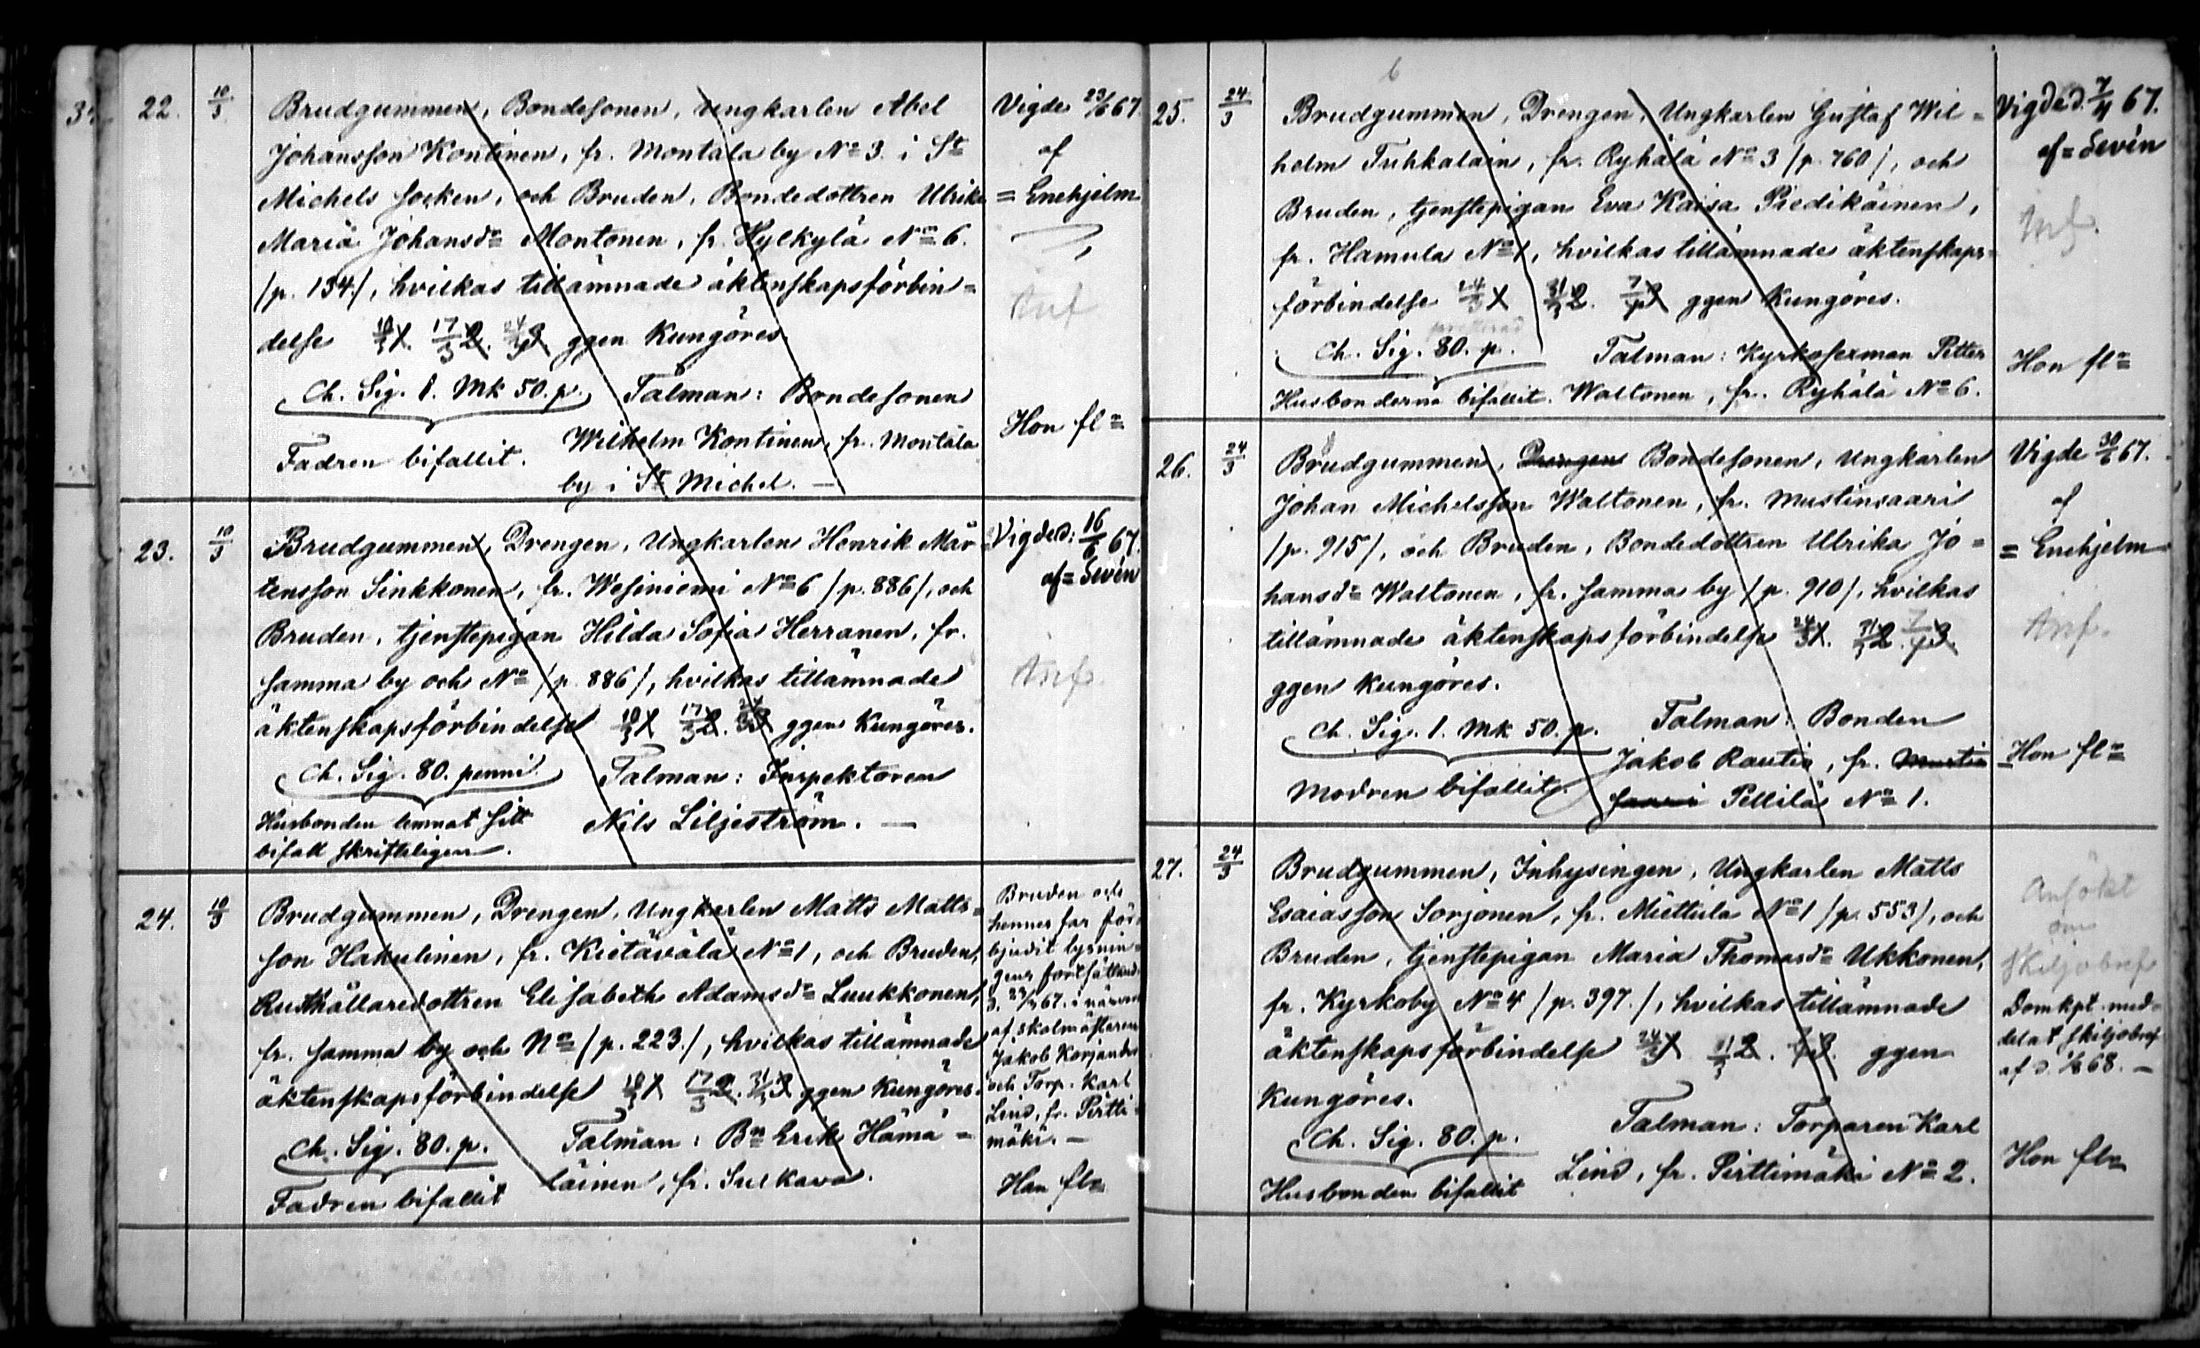 22. 10/3 Brudgummen, Bondesonen, Ungkarlen Abel
Johansson Kontinen, fr. Montala by No 3. i St
Michels socken, och Bruden, Bondedottren Ulrika
Maria Johansd:r Montonen, fr. Hylkylä No 6.
/p. 134/, hvilkas tillämnade äktenskapsförbin=
delse 10/3 1. 17/3 2. 24/3 3 ggen Kungöres.
Ch. Sig. 1. Mk 50. p. Talman: Bondesonen
Fadren bifallit. Wilhelm Kontinen, fr. Montala
by i St Michel. —
Vigde 23/6 67.
af
= Enehjelm
Anf
Hon fl=
23. 10/3 Brudgummen, Drengen, Ungkarlen Henrik Mår=
tensson Sinkkonen, fr. Wesiniemi No 6 /p. 886/, och
Bruden, tjenstepigan Hilda Sofia Herranen, fr.
samma by och No /p. 886/, hvilkas tillämnade
äktenskapsförbindelse 10/3 1 17/3 2. 24/3 3 ggen Kungöres.
Ch. Sig. 80. penni. Talman: Inspektoren
Husbonden lemnat sitt Nils Liljeström. —
bifall skrifteligen.
Vigde d: 16/6 67.
af = Sevén
Anf.
24. 10/3 Brudgummen, Drengen, Ungkarlen Matts Matts=
son Hakulinen, fr. Kietävälä No 1, och Bruden,
Rusthållaredottren Elisabeth Adamsd:r Luukkonen,
fr. samma by och No /p. 223./, hvilkas tillämnade
äktenskapsförbindelse 10/3 1 17/3 2. 31/3 3 ggen Kungöres.
Ch. Sig. 80. p. Talman: Bn Erik Hämä=
Fadren bifallit läinen, fr. Sulkava.
Bruden och
hennes far för=
bjudit lysnin=
gens fortsättand
d. 67. i närvaro
af skolmästaren
Jakob Korjander
och Torp. Karl
Lind, fr. Pirtti=
mäki. —
Han fl=
6
25. 24/3 Brudgummen, Drengen, Ungkarlen Gustaf Wil=
helm Tuhkalain, fr. Ryhälä No 3 /p. 760/, och
Bruden, tjenstepigan Eva Kaisa Piedikäinen,
fr. Hamula No 1, hvilkas tillämnade äktenskaps=
förbindelse 24/3 1 31/3 2. 7/4 3 ggen Kungöres.
Ch. Sig. 80. p. Talman: Kyrkosexman Petter
Husbonderna bifallit. Waltonen, fr. Ryhälä No 6.
Vigde d. 7/4 67.
af = Sevén
Anf.
Hon fl=
26. 24/3 Brudgummen, Drengen Bondesonen, Ungkarlen
Johan Michelsson Waltonen, fr. Mustinsaari
/p. 915/, och Bruden, Bondedottren Ulrika Jo=
hansd:r Waltonen, fr. samma by /p. 910/, hvilkas
tillämnade äktenskapsförbindelse 24/3 1. 31/3 2. 7/4 3
ggen Kungöres.
Ch. Sig. 1. Mk 50. p. Talman: Bonden
Jakob Rautio, fr. Mustin=
Modren bifallit. saari Pellilä No 1.
Vigde 30/6 67.
af
= Enehjelm
Anf.
Hon fl=
27. 24/3 Brudgummen, Inhysingen, Ungkarlen Matts
Esaiasson Sorjonen, fr. Miettula No 1 /p. 553/, och
Bruden, tjenstepigan Maria Thomasd:r Ukkonen,
fr. Kyrkoby No 4 /p. 397./, hvilkas tillämnade
äktenskapsförbindelse 24/3 1 31/3 2. 7/4 3. ggen
Kungöres.
Ch. Sig. 80. p. Talman: Torparen Karl
Husbonden bifallit Lind, fr. Pirttimäki No 2.
Ansökt
om
skiljobref
Domkpt. med=
delat skiljobref
af d. 68. —
Hon fl=